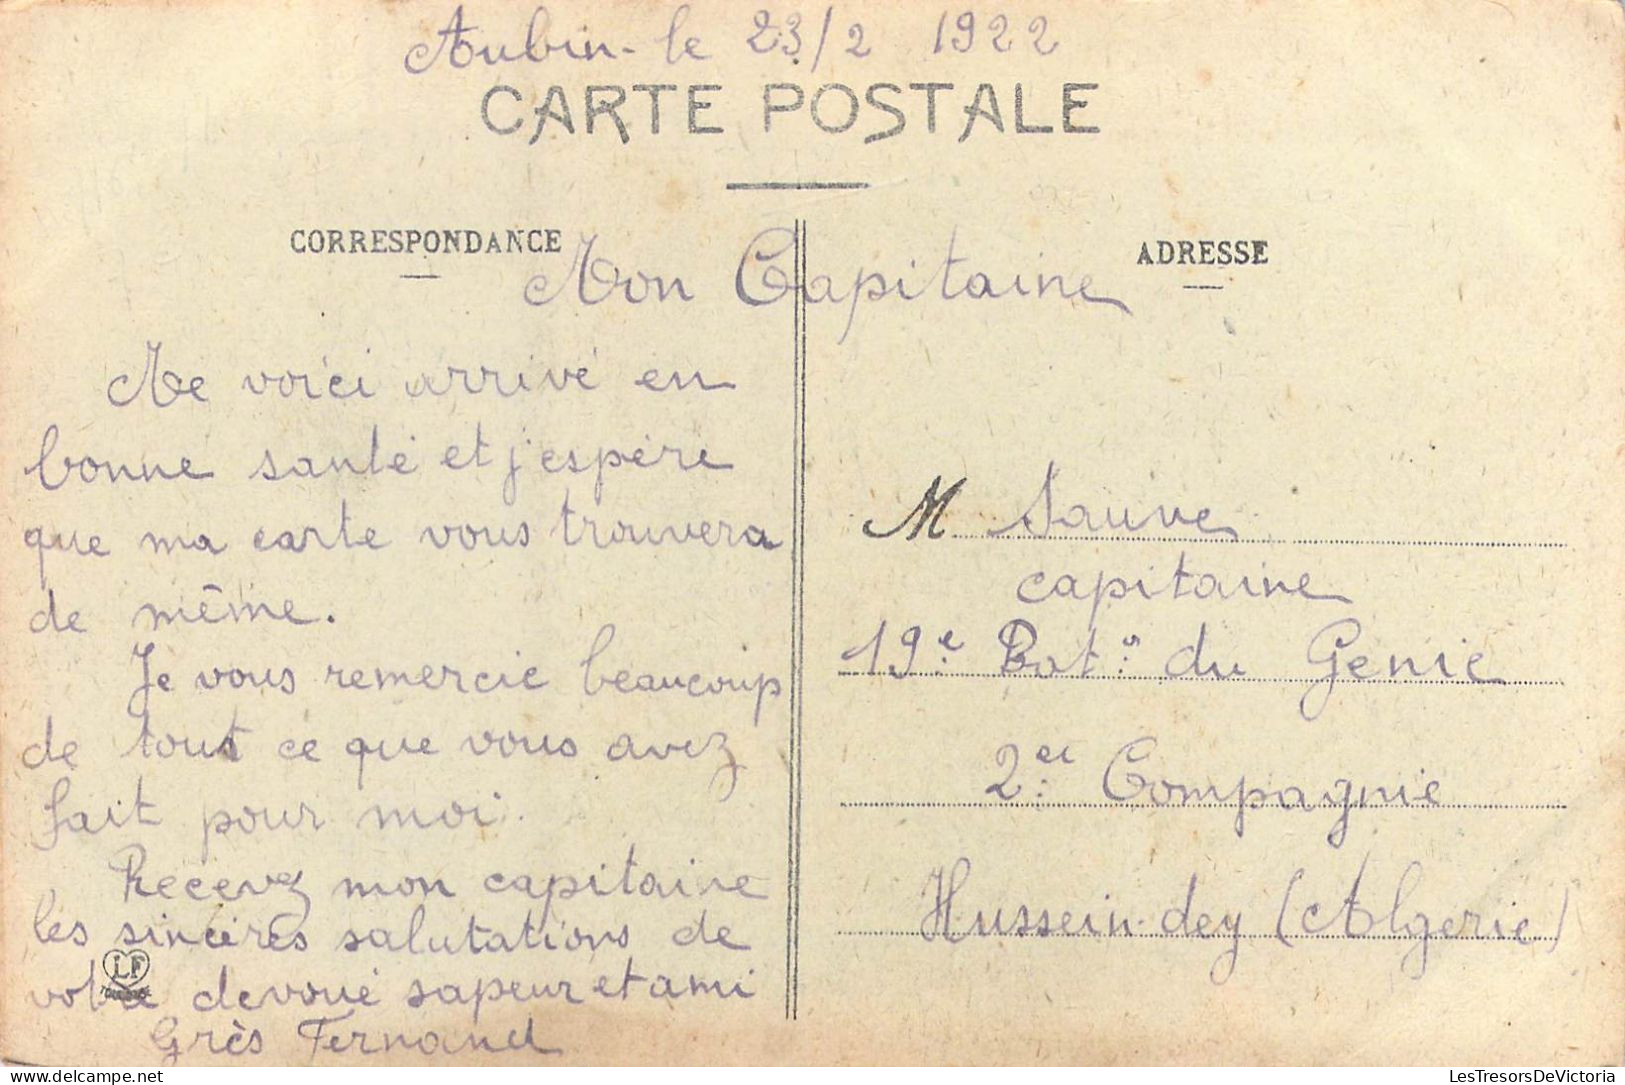 Aubin - le 23/2 1922
CARTE POSTALE
CORRESPONDANCE
ADRESSE
Mon Capitaine
Me voici arrivé en
bonne santé et j'espère
que ma carte vous trouvera
de même.
Je vous remercie beaucoup
de tout ce que vous avez
fait pour moi.
Recevez mon capitaine
les sincères salutations de
votre devoué sapeur et ami
Grès Fernand
LF
M Sauve
capitaine
19e Bat.n du Genie
2e Compagnie
Hussein-dey (Algerie)
LesTresorsDeVictoria